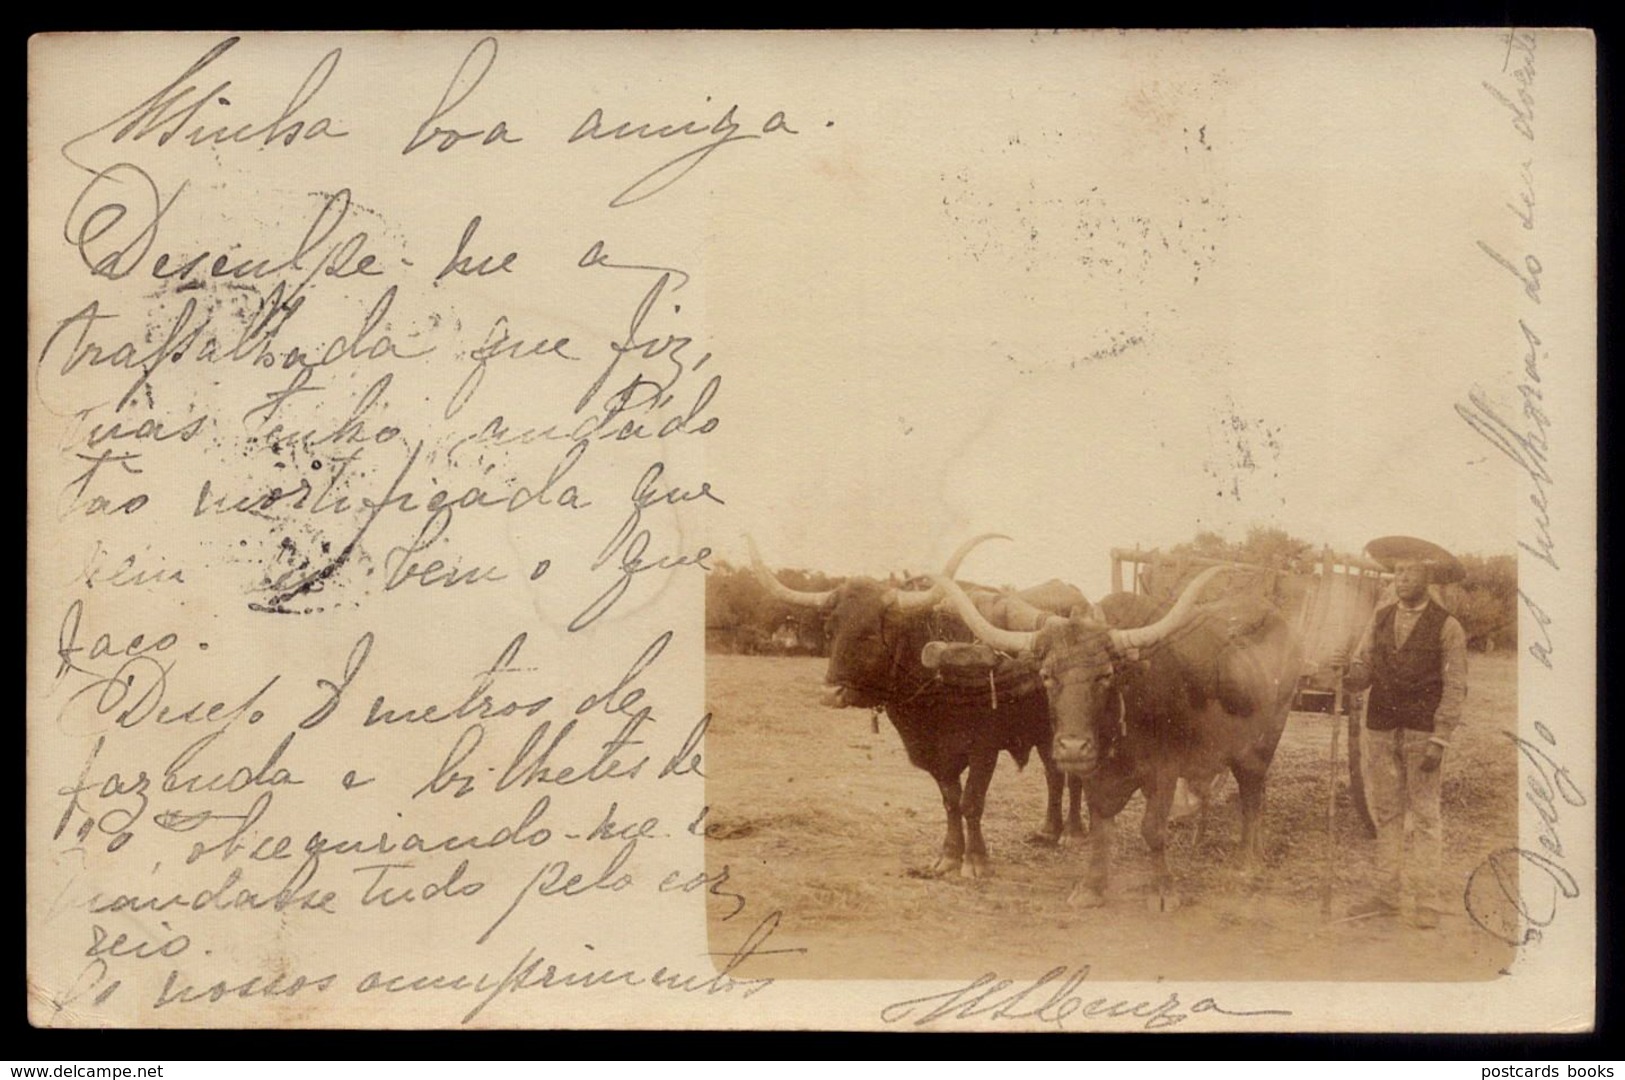 Minha boa amiga.
Desculpe-me a
trapalhada que fiz,
mas tenho andado
tão mortificada que
nem sei bem o que
faço.
Desejo 8 metros de
fazenda e bilhetes de
obsequiando-me se
mandasse tudo pelo cor
reio.
Os nossos cumprimentos
Desejo as melhoras do seu doente
www.delcampe.net
postcards books